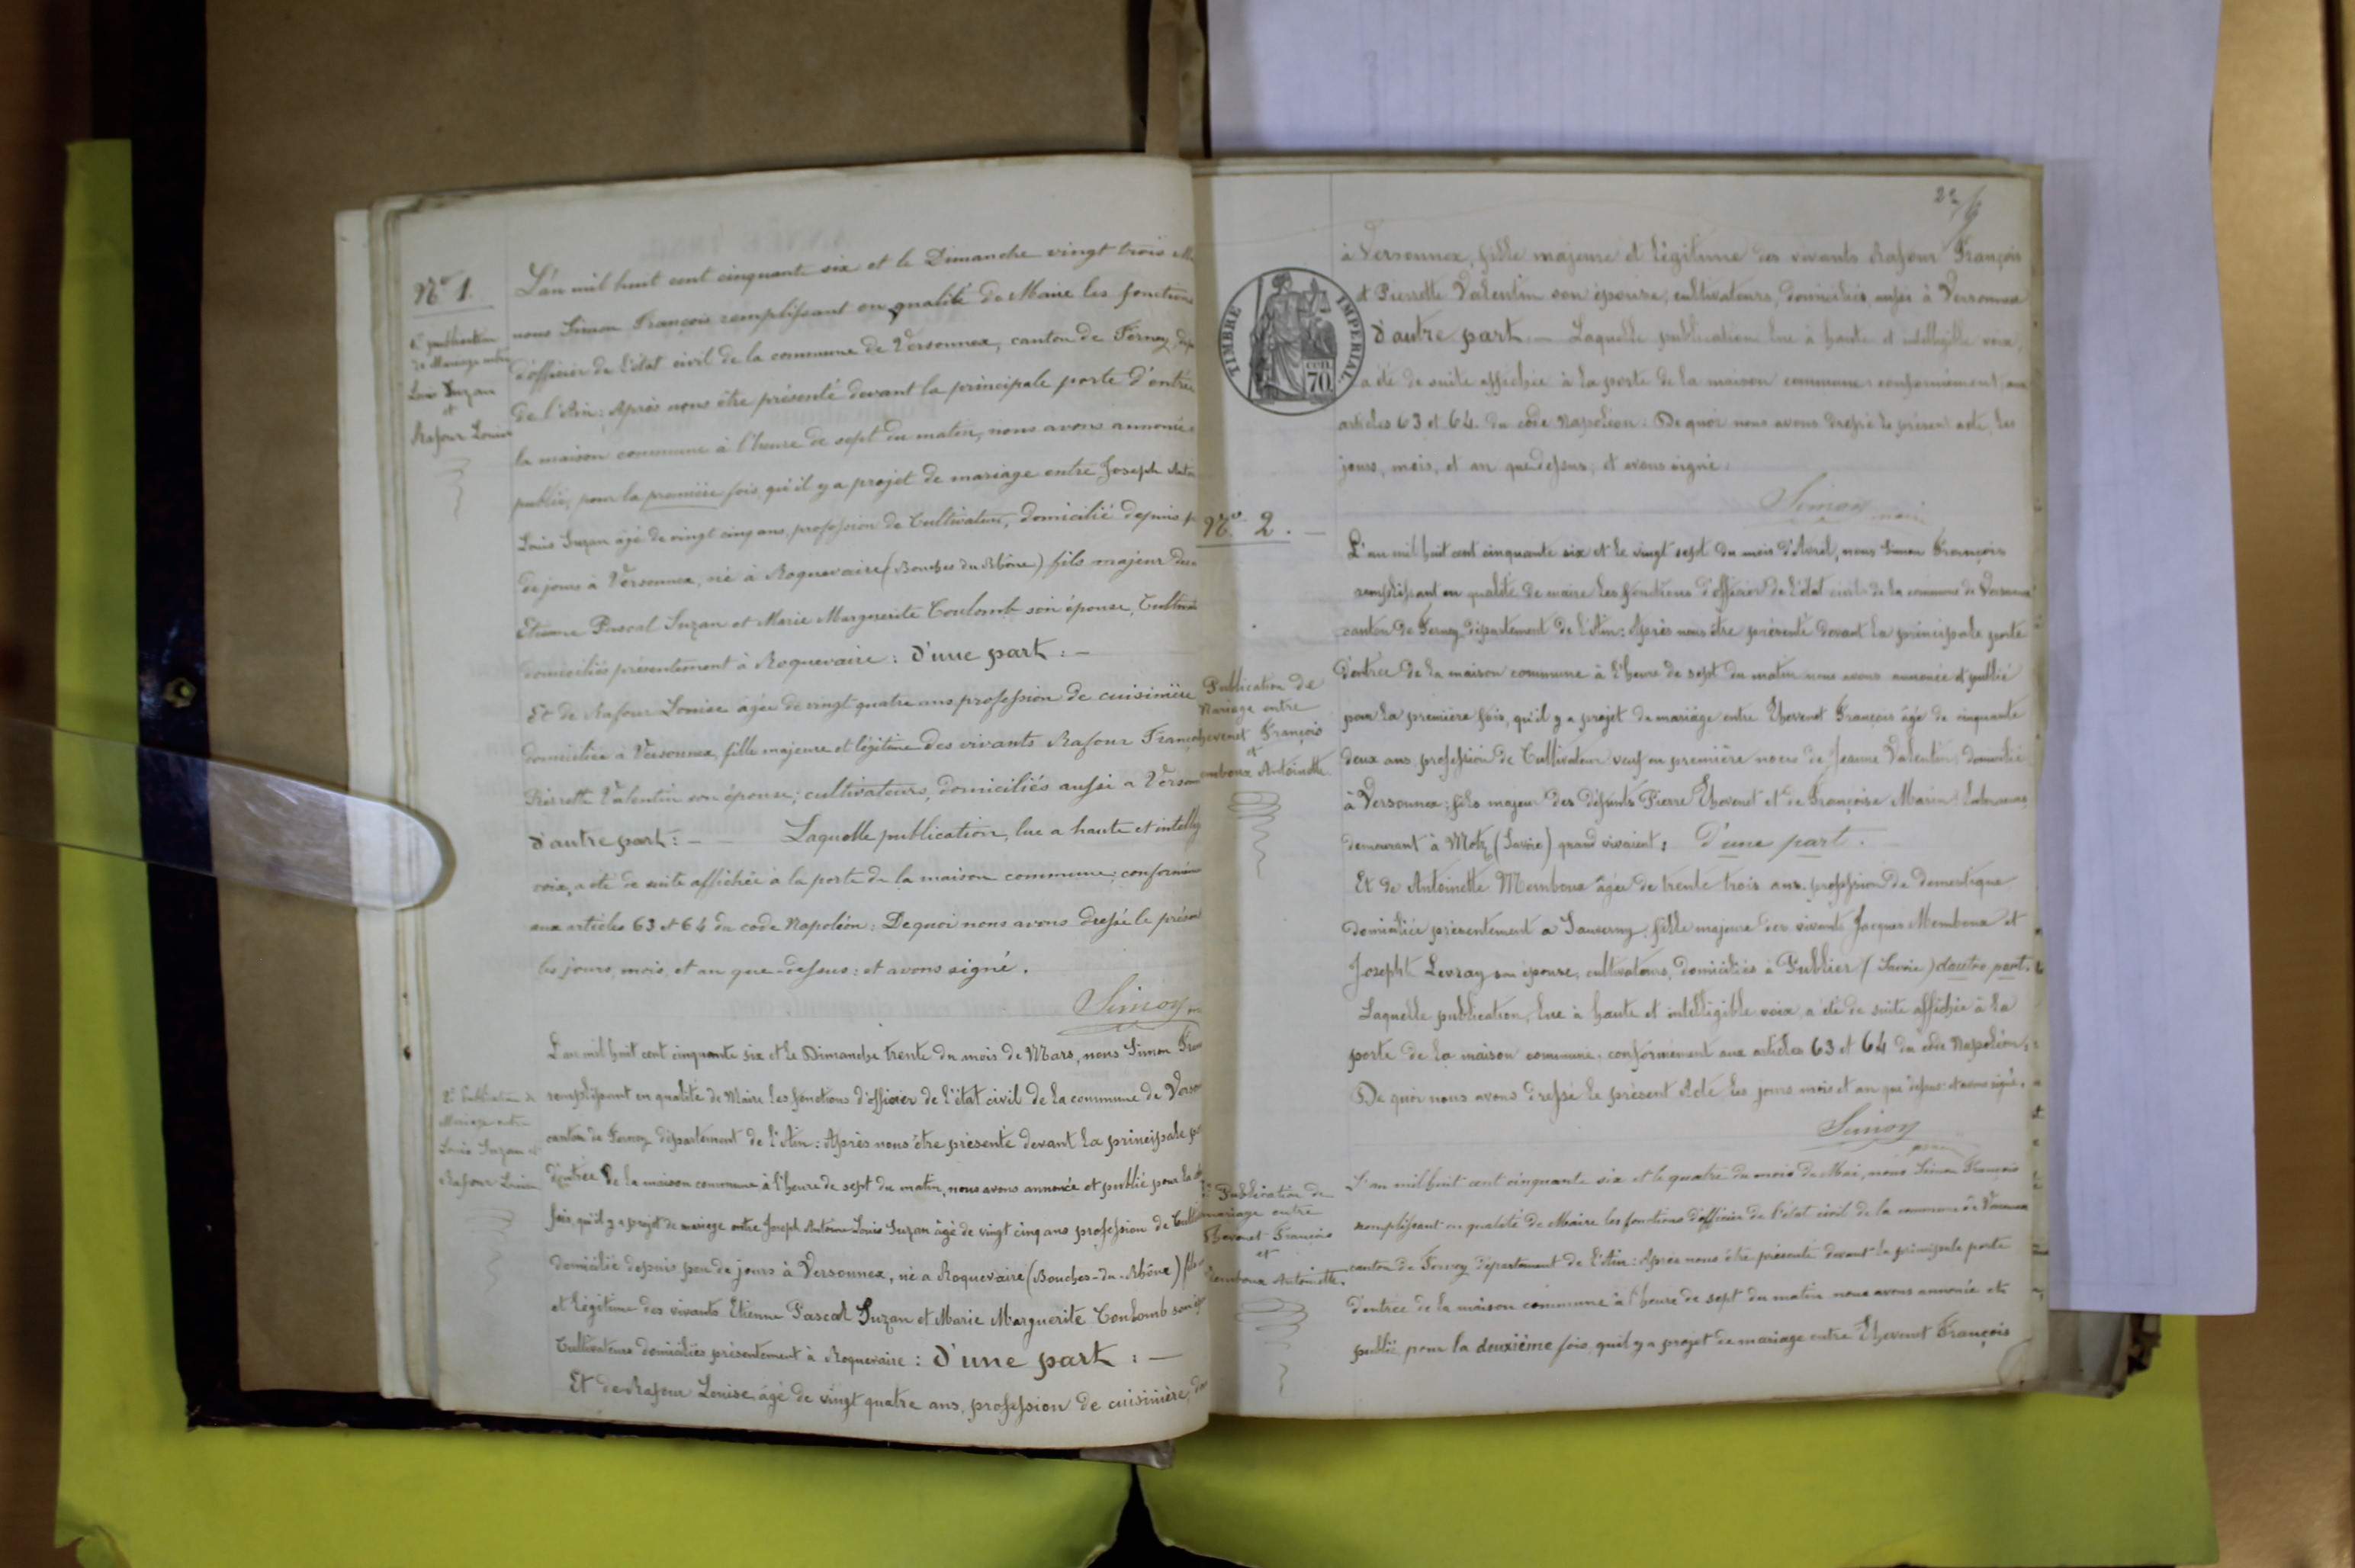 No 1.
1re publication
de Mariage entre
Louis Suzan
et
Rafour Louise
L'an mil huit cent cinquante six et le Dimanche vingt trois
nous Simon François remplissant en qualité de Maire les fonctions
d'officier de l'état civil de la commune de Versonnex, canton de Ferney,
de l'Ain : Après nous être présenté devant la principale porte d'entrée
la maison commune à l'heure de sept du matin, nous avons annoncé
publié, pour la première fois, qu'il y a projet de mariage entre Joseph
Louis Suzan âgé de vingt cinq ans, profession de Cultivateur, domicilié depuis
de jours à Versonnex, né à Roquevaire (Bouches du Rhône) fils majeur
Etienne Pascal Suzan et Marie Marguerite Coulomb son épouse,
domiciliés présentement à Roquevaire : d'une part : —
Et de Rafour Louise âgée de vingt quatre ans profession de cuisinière
domiciliée à Versonnex, fille majeure et légitime des vivants Rafour
Pierrette Valentin son épouse ; cultivateurs, domiciliés aussi a
d'autre part : — — Laquelle publication, lue a haute et
voix, a été de suite affichée à la porte de la maison commune ;
aux articles 63 et 64 du code Napoléon : De quoi nous avons dressé le
les jours, mois, et an que-dessus : et avons signé.
Simon
2e Publication de
Mariage entre
Louis Suzan et
Rafour Louise
L'an mil huit cent cinquante six et le Dimanche trente du mois de Mars, nous Simon
remplissant en qualité de Maire les fonctions d'officier de l'état civil de la commune de
canton de Ferney département de l'Ain : Après nous être présenté devant la principale
d'entrée de la maison commune à l'heure de sept du matin, nous avons annoncé et publié pour la
fois, qu'il y a projet de mariage entre Joseph Antoine Louis Suzan âgé de vingt cinq ans profession de
domicilié depuis peu de jours à Versonnex, né a Roquevaire (Bouches-du-Rhône)
et légitime des vivants Etienne Pascal Suzan et Marie Marguerite Coulomb son
Cultivateurs domiciliés présentement à Roquevaire : d'une part : —
Et de Rafour Louise, âgé de vingt quatre ans, profession de cuisinière,
TIMBRE IMPERIAL
CEN.
70
à Versonnex, fille majeure et légitime des vivants Rafour François
et Pierrette Valentin son épouse, cultivateurs, domiciliés aussi à Versonnex
d'autre part — Laquelle publication lue à haute et intelligible voix,
a été de suite affichée à la porte de la maison commune conformément aux
articles 63 et 64. du code Napoléon : De quoi nous avons dressé le présent acte, les
jours, mois, et an que dessus, et avons signé :
Simon maire
No 2. —
Publication de
Mariage entre
hevenet François
et
emboux Antoinette
L'an mil huit cent cinquante six et le vingt sept du mois d'Avril, nous Simon François
remplissant en qualité de maire les fonctions d'officier de l'état civil de la commune de Versonnex
canton de Ferney département de l'Ain : Après nous être présenté devant la principale porte
d'entrée de la maison commune à l'heure de sept du matin nous avons annoncé et publié
pour la première fois, qu'il y a projet de mariage entre Thevenet François âgé de cinquante
deux ans profession de Cultivateur veuf en première noces de Jeanne Valentin, domicilié
à Versonnex, fils majeur des défunts Pierre Thevenet et de Françoise Marin
demeurant à Motz (Savoie) quand vivaient ; d'une part. —
Et de Antoinette Memboux âgée de trente trois ans, profession de domestique
domiciliée présentement a Sauverny, fille majeure des vivants Jacques Memboux et
Josephte Levray son épouse, cultivateurs, domiciliés à Publier (Savoie) d'autre part.
Laquelle publication, lue à haute et intelligible voix, a été de suite affichée à la
porte de la maison commune, conformément aux articles 63 et 64 du code Napoléon.
De quoi nous avons dressé le présent Acte, les jours mois et an que dessus et avons signé.
Simon
2e Publication de
mariage entre
Thevenet François
et
Memboux Antoinette.
L'an mil huit cent cinquante six et le quatre du mois de Mai, nous Simon François
remplissant en qualité de Maire les fonctions d'officier de l'état civil de la commune de Versonnex
canton de Ferney département de l'Ain : Après nous être présenté devant la principale porte
d'entrée de la maison commune à l'heure de sept du matin nous avons annoncé et
publié, pour la deuxième fois, qu'il y a projet de mariage entre Thevenet François